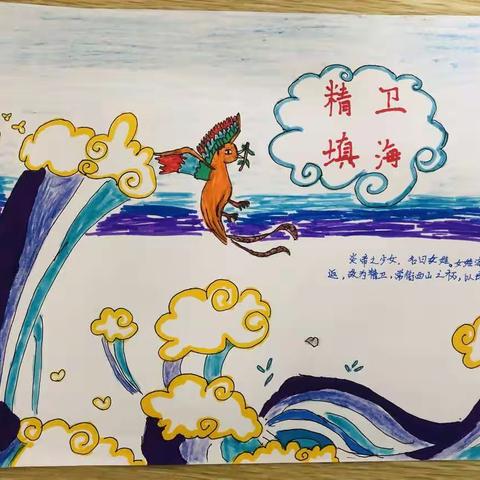 精卫
填海
炎帝之少女,名曰女娃。女娃
返,故为精卫,常衔西山之木石,以